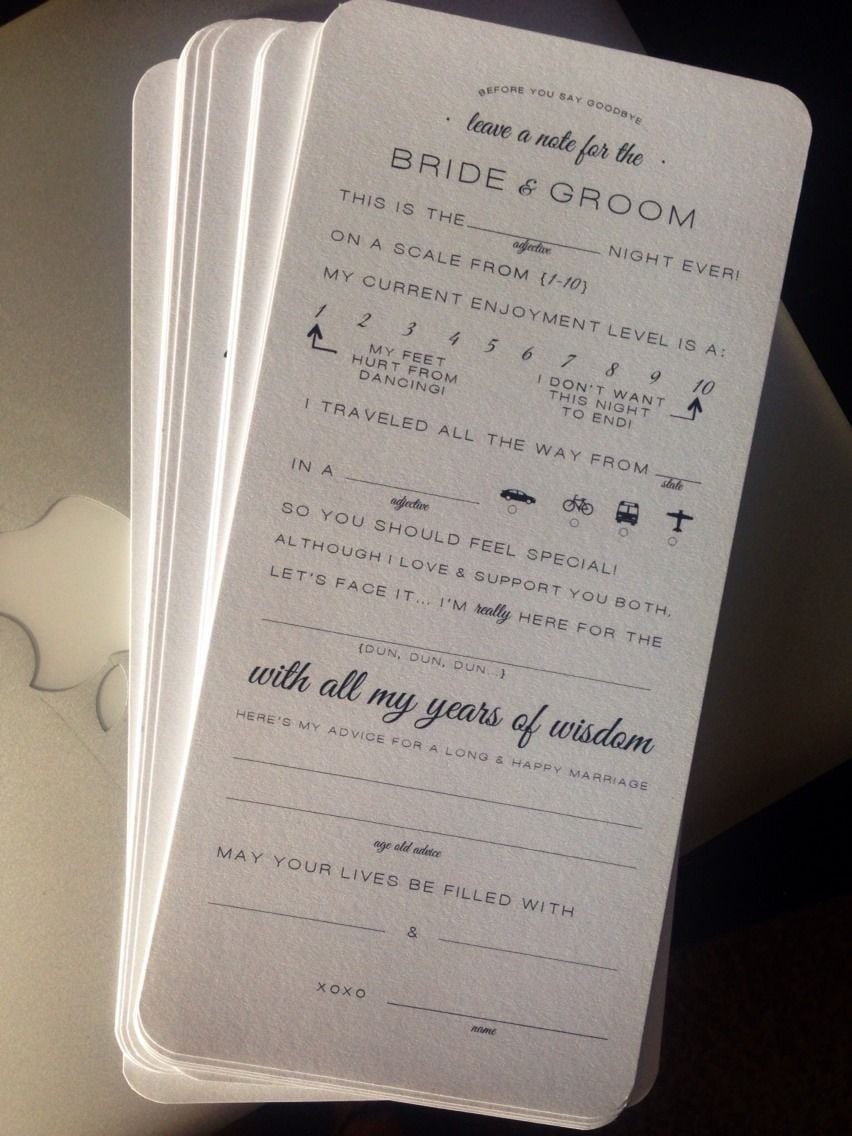 BEFORE YOU SAY GOODBYE
· leave a note for the ·
BRIDE & GROOM
THIS IS THE ____________ NIGHT EVER!
adjective
ON A SCALE FROM {1-10}
MY CURRENT ENJOYMENT LEVEL IS A:
1 2 3 4 5 6 7 8 9 10
MY FEET
HURT FROM
DANCING!
I DON'T WANT
THIS NIGHT
TO END!
I TRAVELED ALL THE WAY FROM ____
state
IN A ____________
adjective
SO YOU SHOULD FEEL SPECIAL!
ALTHOUGH I LOVE & SUPPORT YOU BOTH,
LET'S FACE IT... I'M really HERE FOR THE
{DUN, DUN, DUN...}
with all my years of wisdom
HERE'S MY ADVICE FOR A LONG & HAPPY MARRIAGE
age old advice
MAY YOUR LIVES BE FILLED WITH
____________ & ____________
XOXO ____________
name